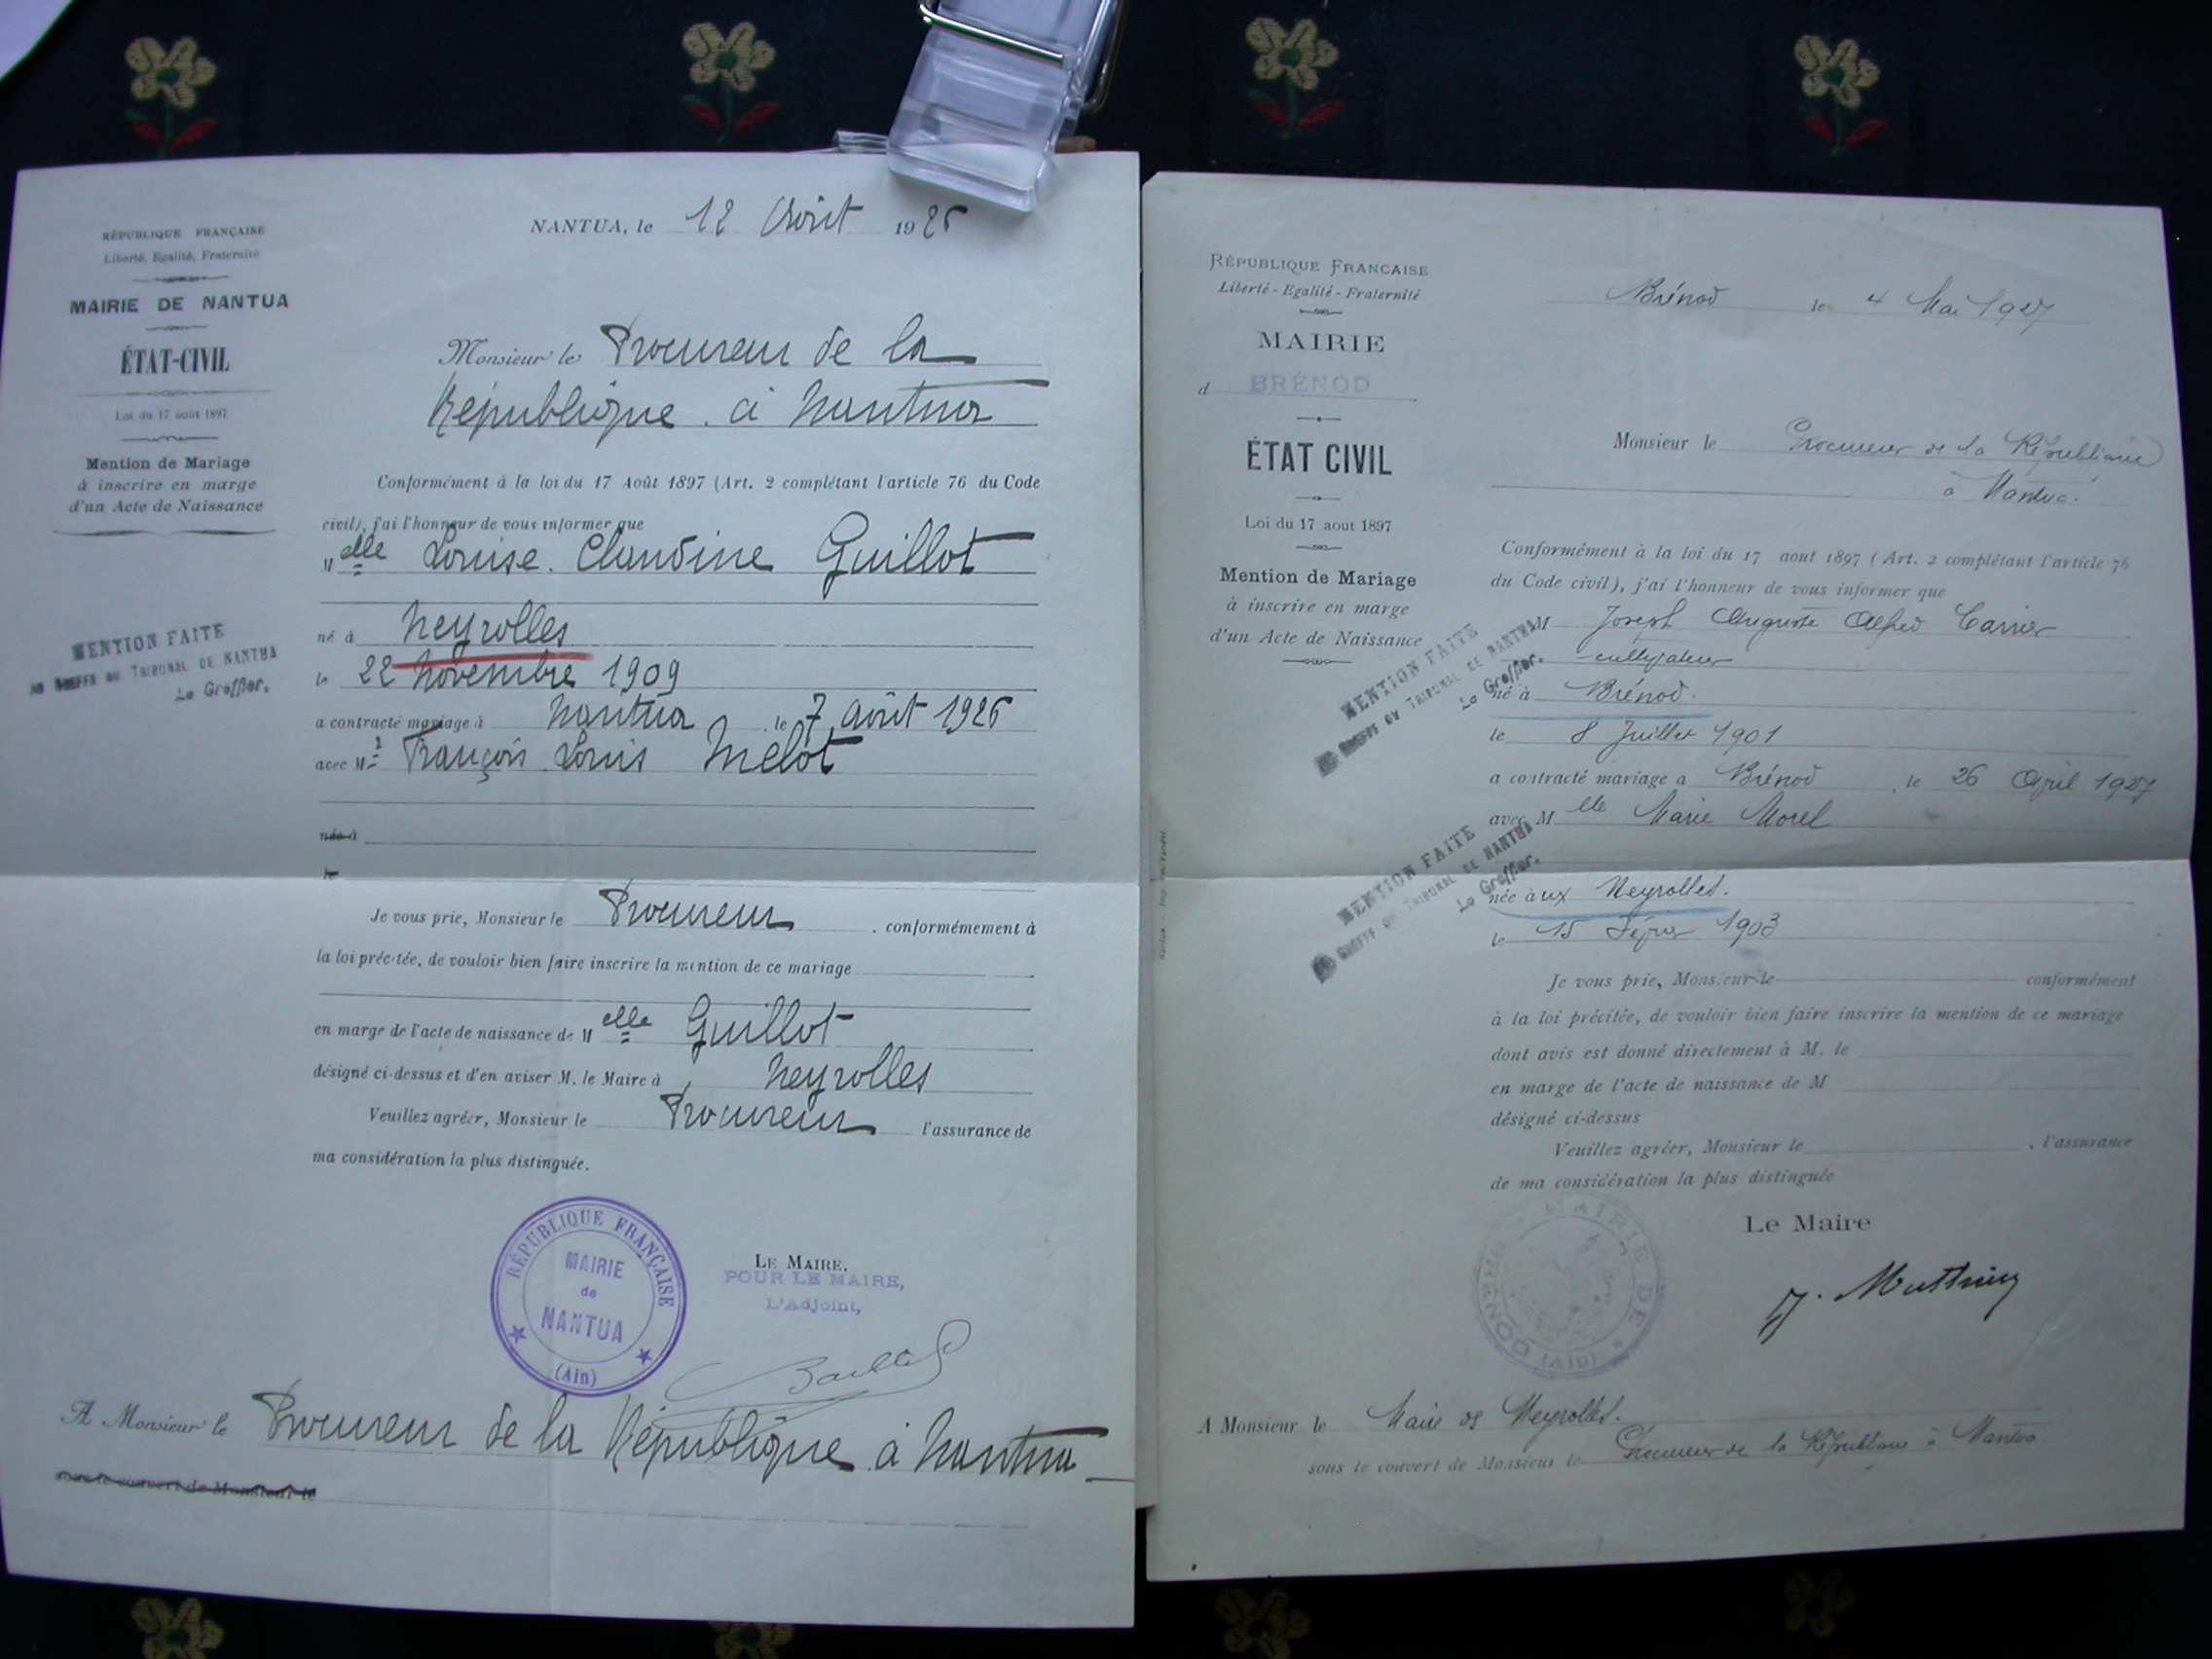 RÉPUBLIQUE FRANÇAISE
Liberté, Egalité, Fraternité
MAIRIE DE NANTUA
ÉTAT-CIVIL
Loi du 17 août 1897
Mention de Mariage
à inscrire en marge
d'un Acte de Naissance
MENTION FAITE
AU GREFFE DU TRIBUNAL DE NANTUA
Le Greffier.
NANTUA, le 12 Août 1926
Monsieur le Procureur de la
République à Nantua
Conformément à la loi du 17 Août 1897 (Art. 2 complétant l'article 76 du Code
civil), j'ai l'honneur de vous informer que
Melle Louise Claudine Guillot
né à Neyrolles
le 22 Novembre 1909
a contracté mariage à Nantua le 7 août 1926
avec Mr François Louis Melot
née à
le
Je vous prie, Monsieur le Procureur, conformémement à
la loi précitée, de vouloir bien faire inscrire la mention de ce mariage
en marge de l'acte de naissance de Melle Guillot
désigné ci-dessus et d'en aviser M. le Maire à Neyrolles
Veuillez agréer, Monsieur le Procureur l'assurance de
ma considération la plus distinguée.
RÉPUBLIQUE FRANÇAISE
MAIRIE
de
NANTUA
(Ain)
LE MAIRE,
POUR LE MAIRE,
L'Adjoint,
A Monsieur le Procureur de la République à Nantua
sous le couvert de Monsieur le
RÉPUBLIQUE FRANCAISE
Liberté - Egalité - Fraternité
MAIRIE
d BRÉNOD
ÉTAT CIVIL
Loi du 17 aout 1897
Mention de Mariage
à inscrire en marge
d'un Acte de Naissance
MENTION FAITE
AU GREFFE DU TRIBUNAL DE NANTUA
Le Greffier.
MENTION FAITE
AU GREFFE DU TRIBUNAL DE NANTUA
Le Greffier.
Brénod le 4 Mai 1927
Monsieur le Procureur de la République
à Nantua.
Conformément à la loi du 17 aout 1897 (Art. 2 complétant l'article 76
du Code civil), j'ai l'honneur de vous informer que
M Joseph Auguste Alfred Carrier
cultivateur
né à Brénod.
le 8 Juillet 1901
a contracté mariage a Brénod, le 26 April 1927
avec Melle Marie Morel
née aux Neyrolles.
le 15 Février 1903
Je vous prie, Monsieur le conformément
à la loi précitée, de vouloir bien faire inscrire la mention de ce mariage
dont avis est donné directement à M. le
en marge de l'acte de naissance de M
désigné ci-dessus
Veuillez agréer, Monsieur le , l'assurance
de ma considération la plus distinguée
Le Maire
MAIRIE DE
(Ain)
A Monsieur le Maire de Neyrolles.
sous le couvert de Monsieur le Procureur de la République à Nantua